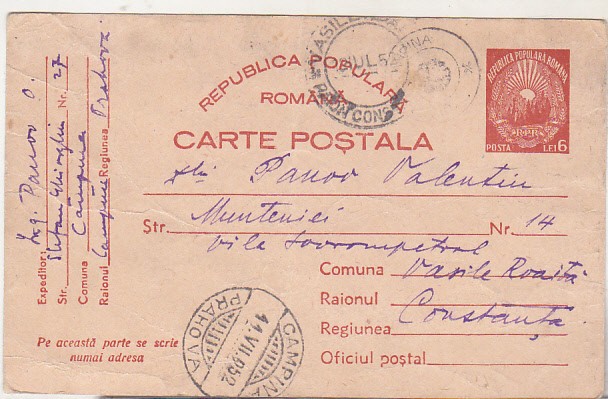 REPUBLICA POPULARĂ
ROMÂNĂ
CARTE POȘTALĂ
REPUBLICA POPULARA ROMANA
RPR
POSTA LEI 6
VASILE
IUL 52
RAION CONS
CAMPINA
Panov Valentin
Str. Munteniei Nr. 14
vila Sovrompetrol
Comuna Vasile Roaită
Raionul Constanța
Regiunea
Oficiul poștal
Expeditor: Ing. Panov O.
Str. Ștefan Gheorghiu Nr. 27
Comuna Câmpina
Raionul Câmpina Regiunea Prahova
Pe această parte se scrie
numai adresa
CAMPINA
11.VII.952
PRAHOVA